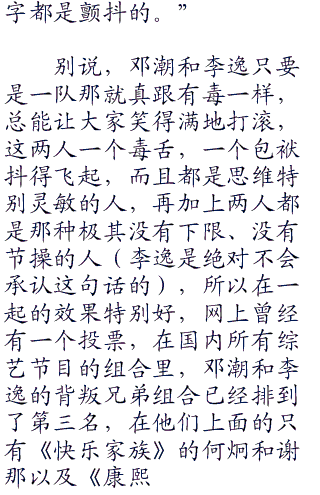 字都是颤抖的。”
别说，邓潮和李逸只要
是一队那就真跟有毒一样，
总能让大家笑得满地打滚，
这两人一个毒舌，一个包袱
抖得飞起，而且都是思维特
别灵敏的人，再加上两人都
是那种极其没有下限、没有
节操的人（李逸是绝对不会
承认这句话的），所以在一
起的效果特别好，网上曾经
有一个投票，在国内所有综
艺节目的组合里，邓潮和李
逸的背叛兄弟组合已经排到
了第三名，在他们上面的只
有《快乐家族》的何炯和谢
那以及《康熙